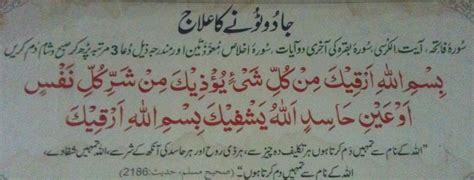 جادو ٹونے کا علاج
سورۂ فاتحہ، آیت الکرسی، سورۂ بقرہ کی آخری دو آیات، سورۂ اخلاص معوذتین اور مندرجہ ذیل دعا 3 مرتبہ پڑھ کر صبح و شام دم کریں
بِسْمِ اللهِ اَرْقِيْكَ مِنْ كُلِّ شَيْءٍ يُؤْذِيْكَ مِنْ شَرِّ كُلِّ نَفْسٍ
اَوْ عَيْنِ حَاسِدٍ اَللهُ يَشْفِيْكَ بِسْمِ اللهِ اَرْقِيْكَ
اللہ کے نام سے تمہیں دم کرتا ہوں ہر تکلیف دہ چیز سے، ہر ذی روح اور ہر حاسد کی آنکھ کے شر سے، اللہ تمہیں شفا دے،
اللہ کے نام سے تمہیں دم کرتا ہوں۔ (صحیح مسلم، حدیث: 2186)